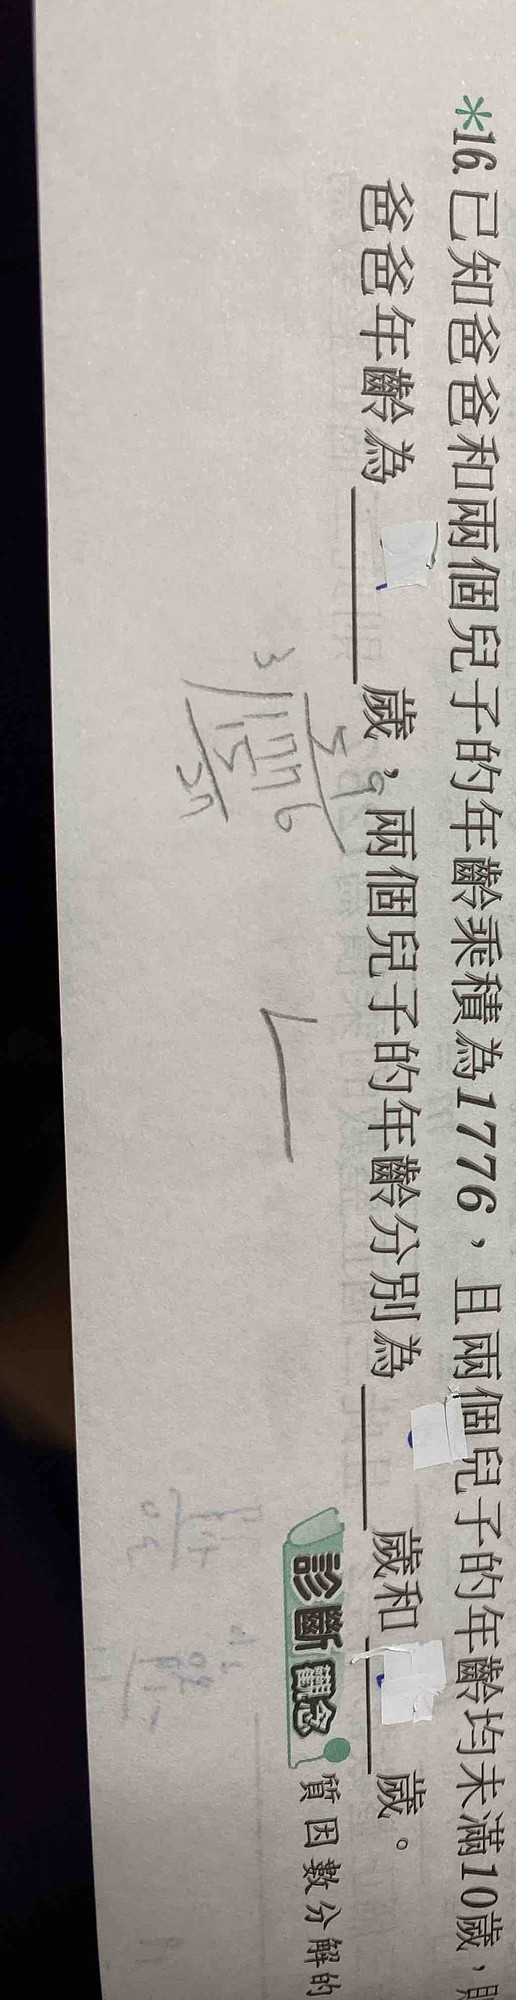 *16. 已知爸爸和兩個兒子的年齡乘積為1776，且兩個兒子的年齡均未滿10歲，則
爸爸年齡為 歲，兩個兒子的年齡分別為 歲和 歲。
診斷觀念 質因數分解的
5 9
3 1776
15
27